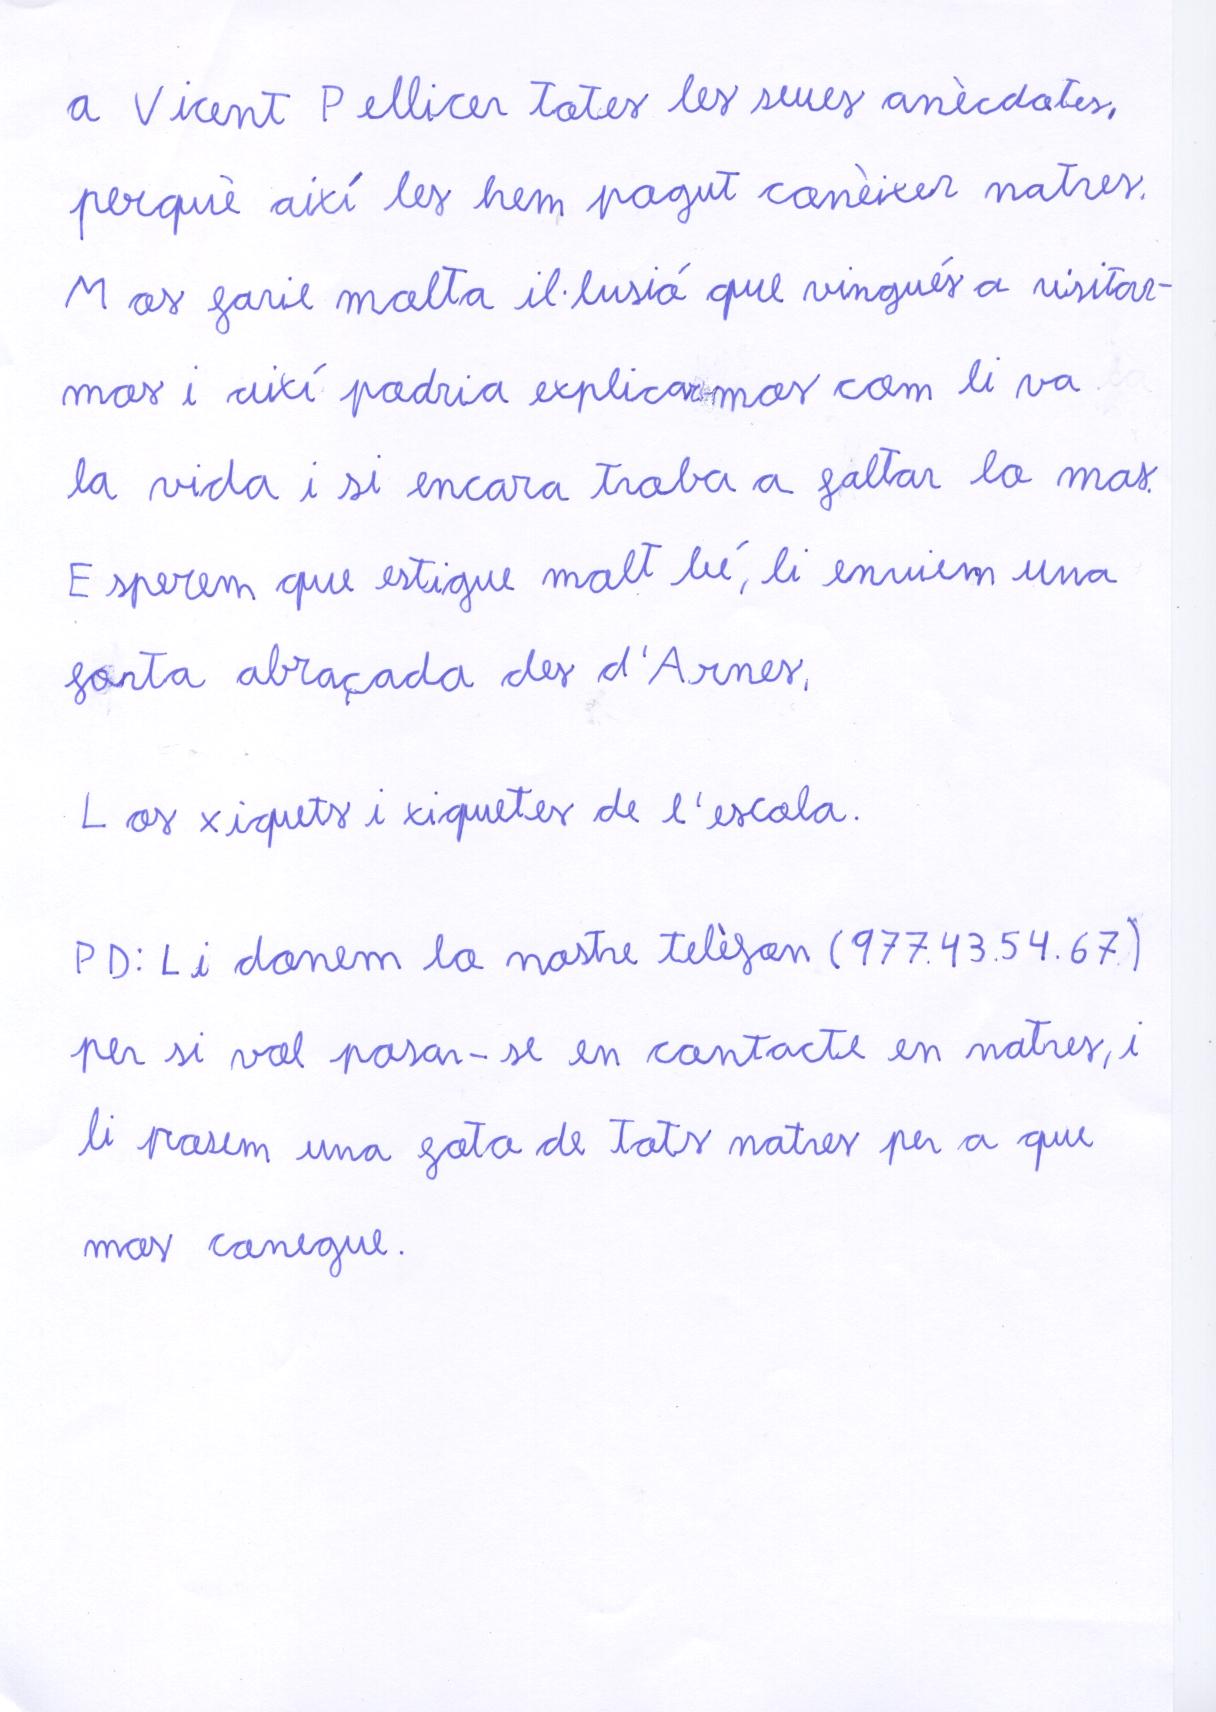 a Vicent Pellicer totes les seues anècdotes,
perquè així les hem pogut conèixer natres.
Mos farie molta il·lusió que vingués a visitar-
mos i així podria explicar-mos com li va
la vida i si encara troba a faltar lo mas.
Esperem que estigue molt bé, li enviem una
forta abraçada des d'Arnes,
Los xiquets i xiquetes de l'escola.
PD: Li donem lo nostre telèfon (977.43.54.67)
per si vol posar-se en contacte en natres, i
li posem una foto de tots natres per a que
mos conegue.